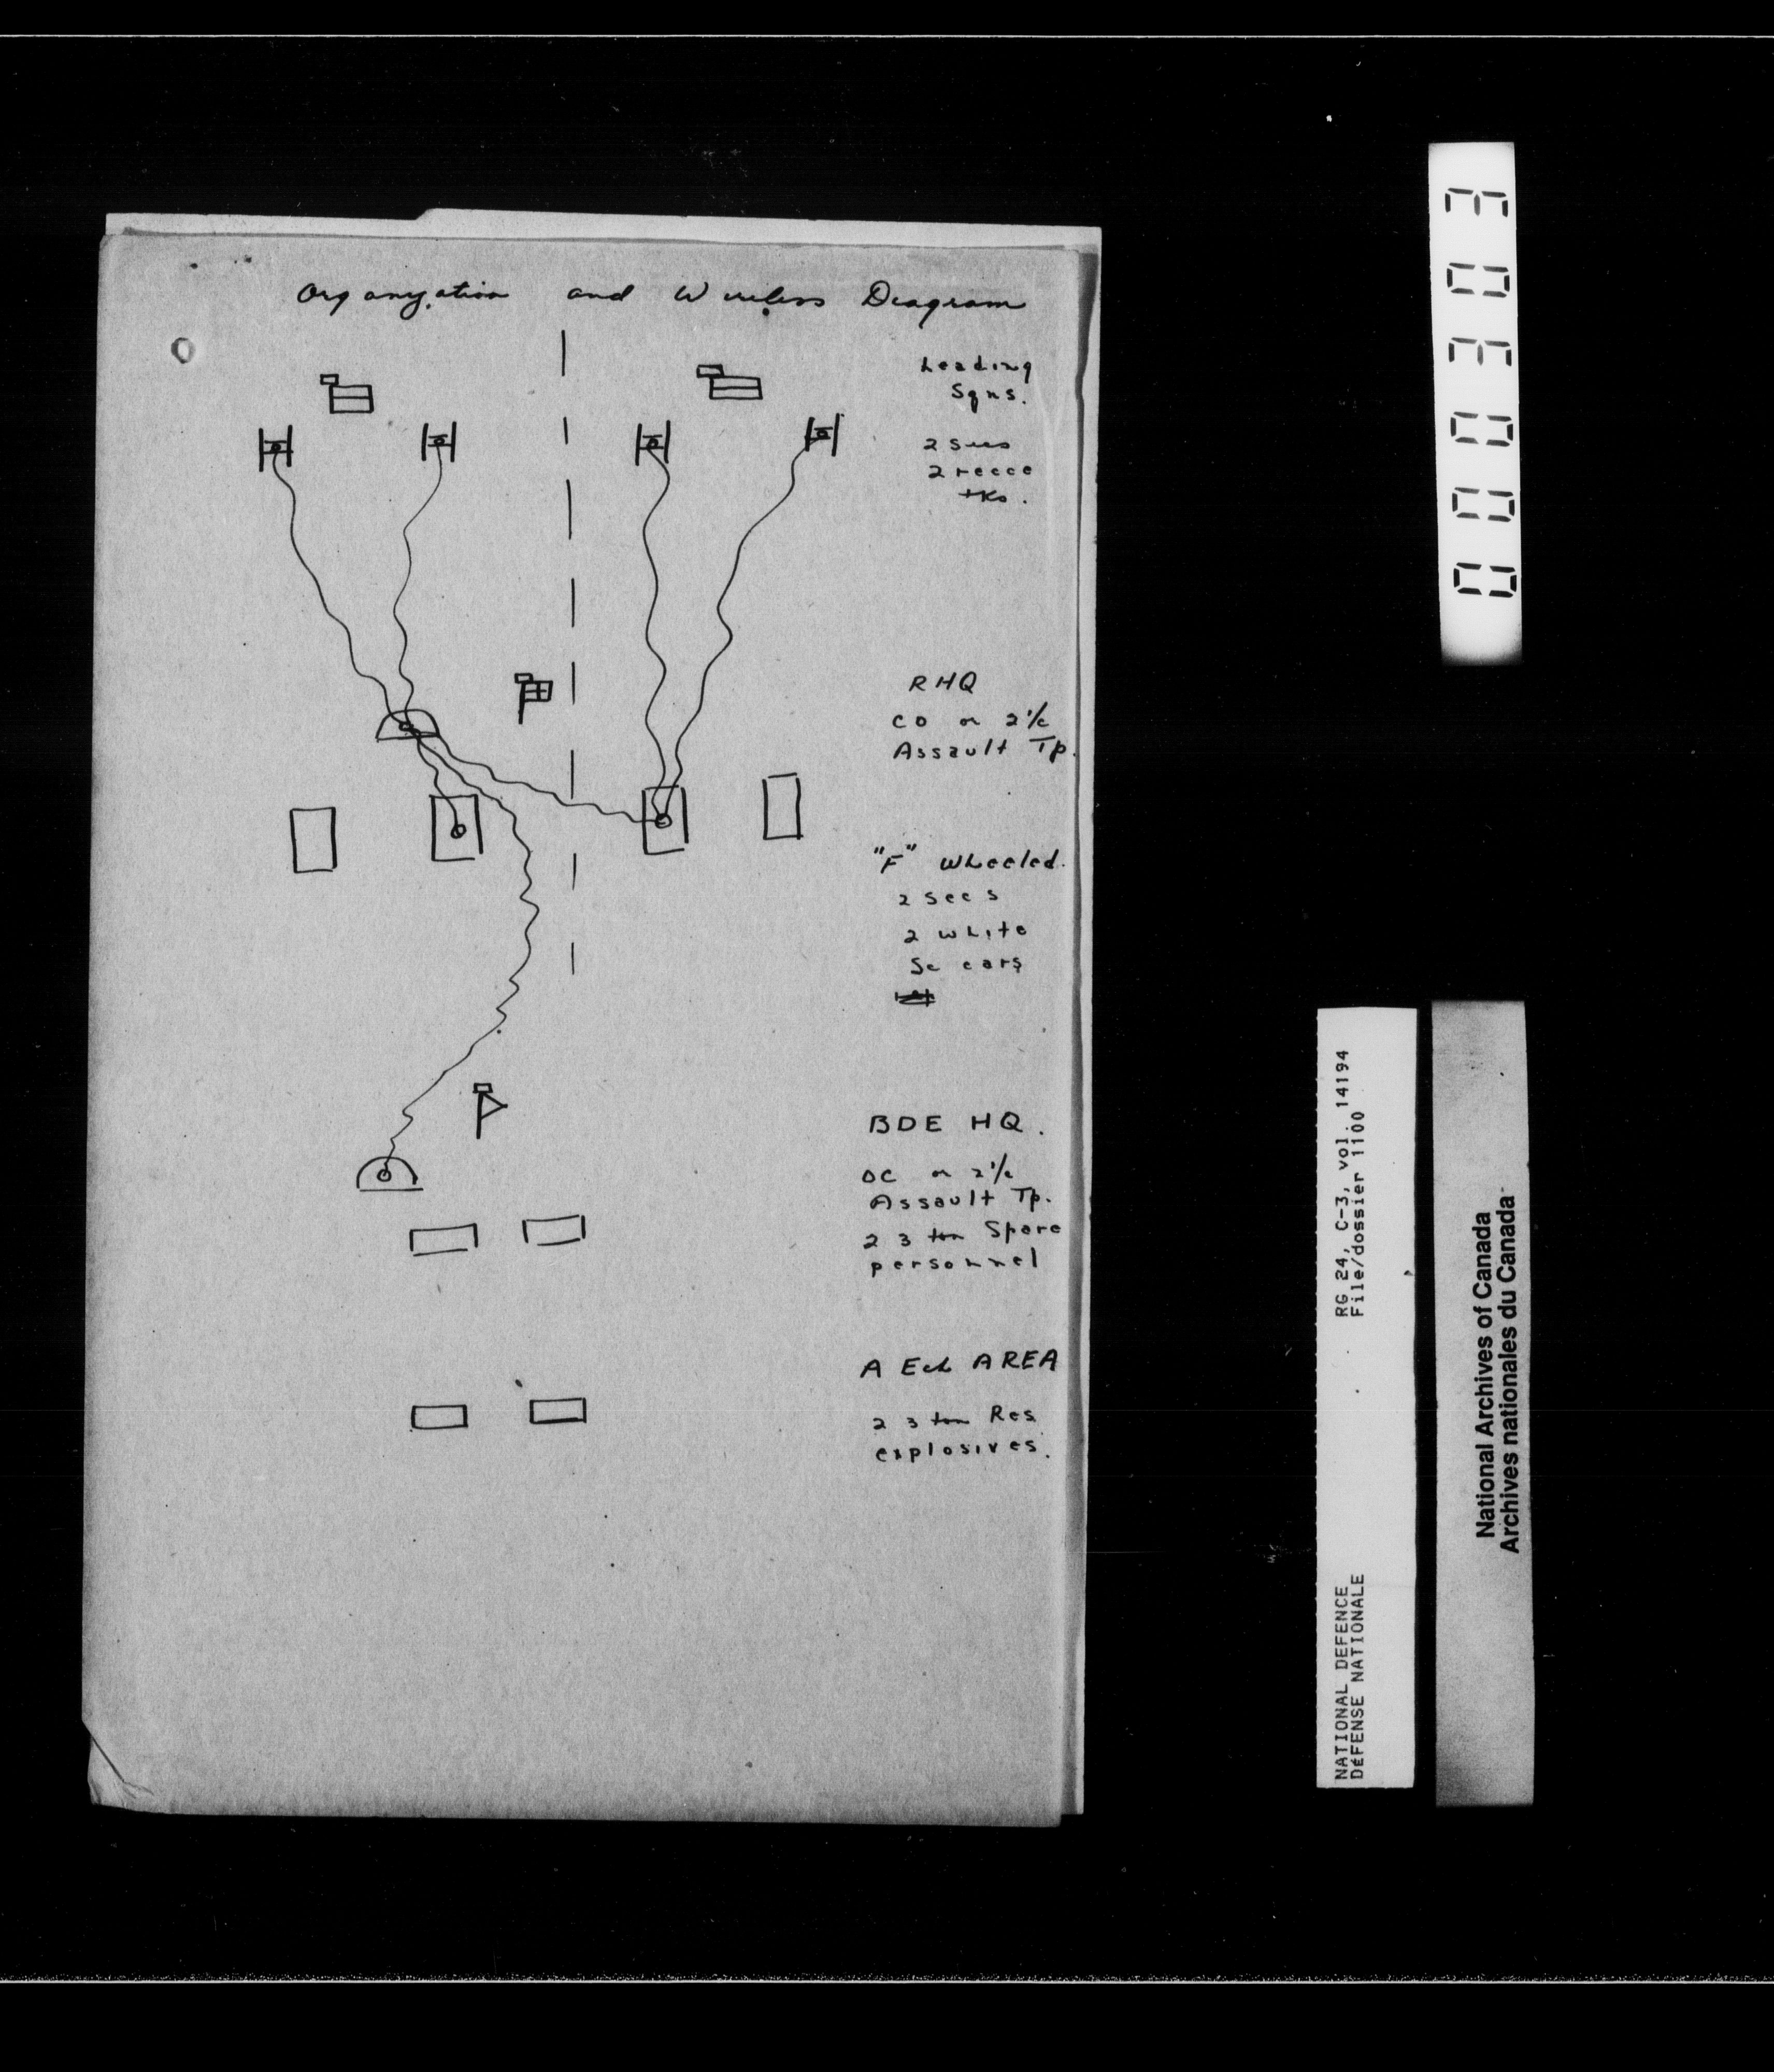 Organization and Wireless Diagram
Leading
Sqns.
2 Secs
2 recce
tks.
RHQ
CO or 2 i/c
Assault Tp.
"F" Wheeled.
2 Secs
2 White
Sc cars
BDE HQ.
OC or 2 i/c
Assault Tp.
2 3 ton Spare
personnel
A Ech AREA
2 3 ton Res
explosives.
000303
RG 24, C-3, vol. 14194
File/dossier 1100
NATIONAL DEFENCE
DéFENSE NATIONALE
National Archives of Canada
Archives nationales du Canada